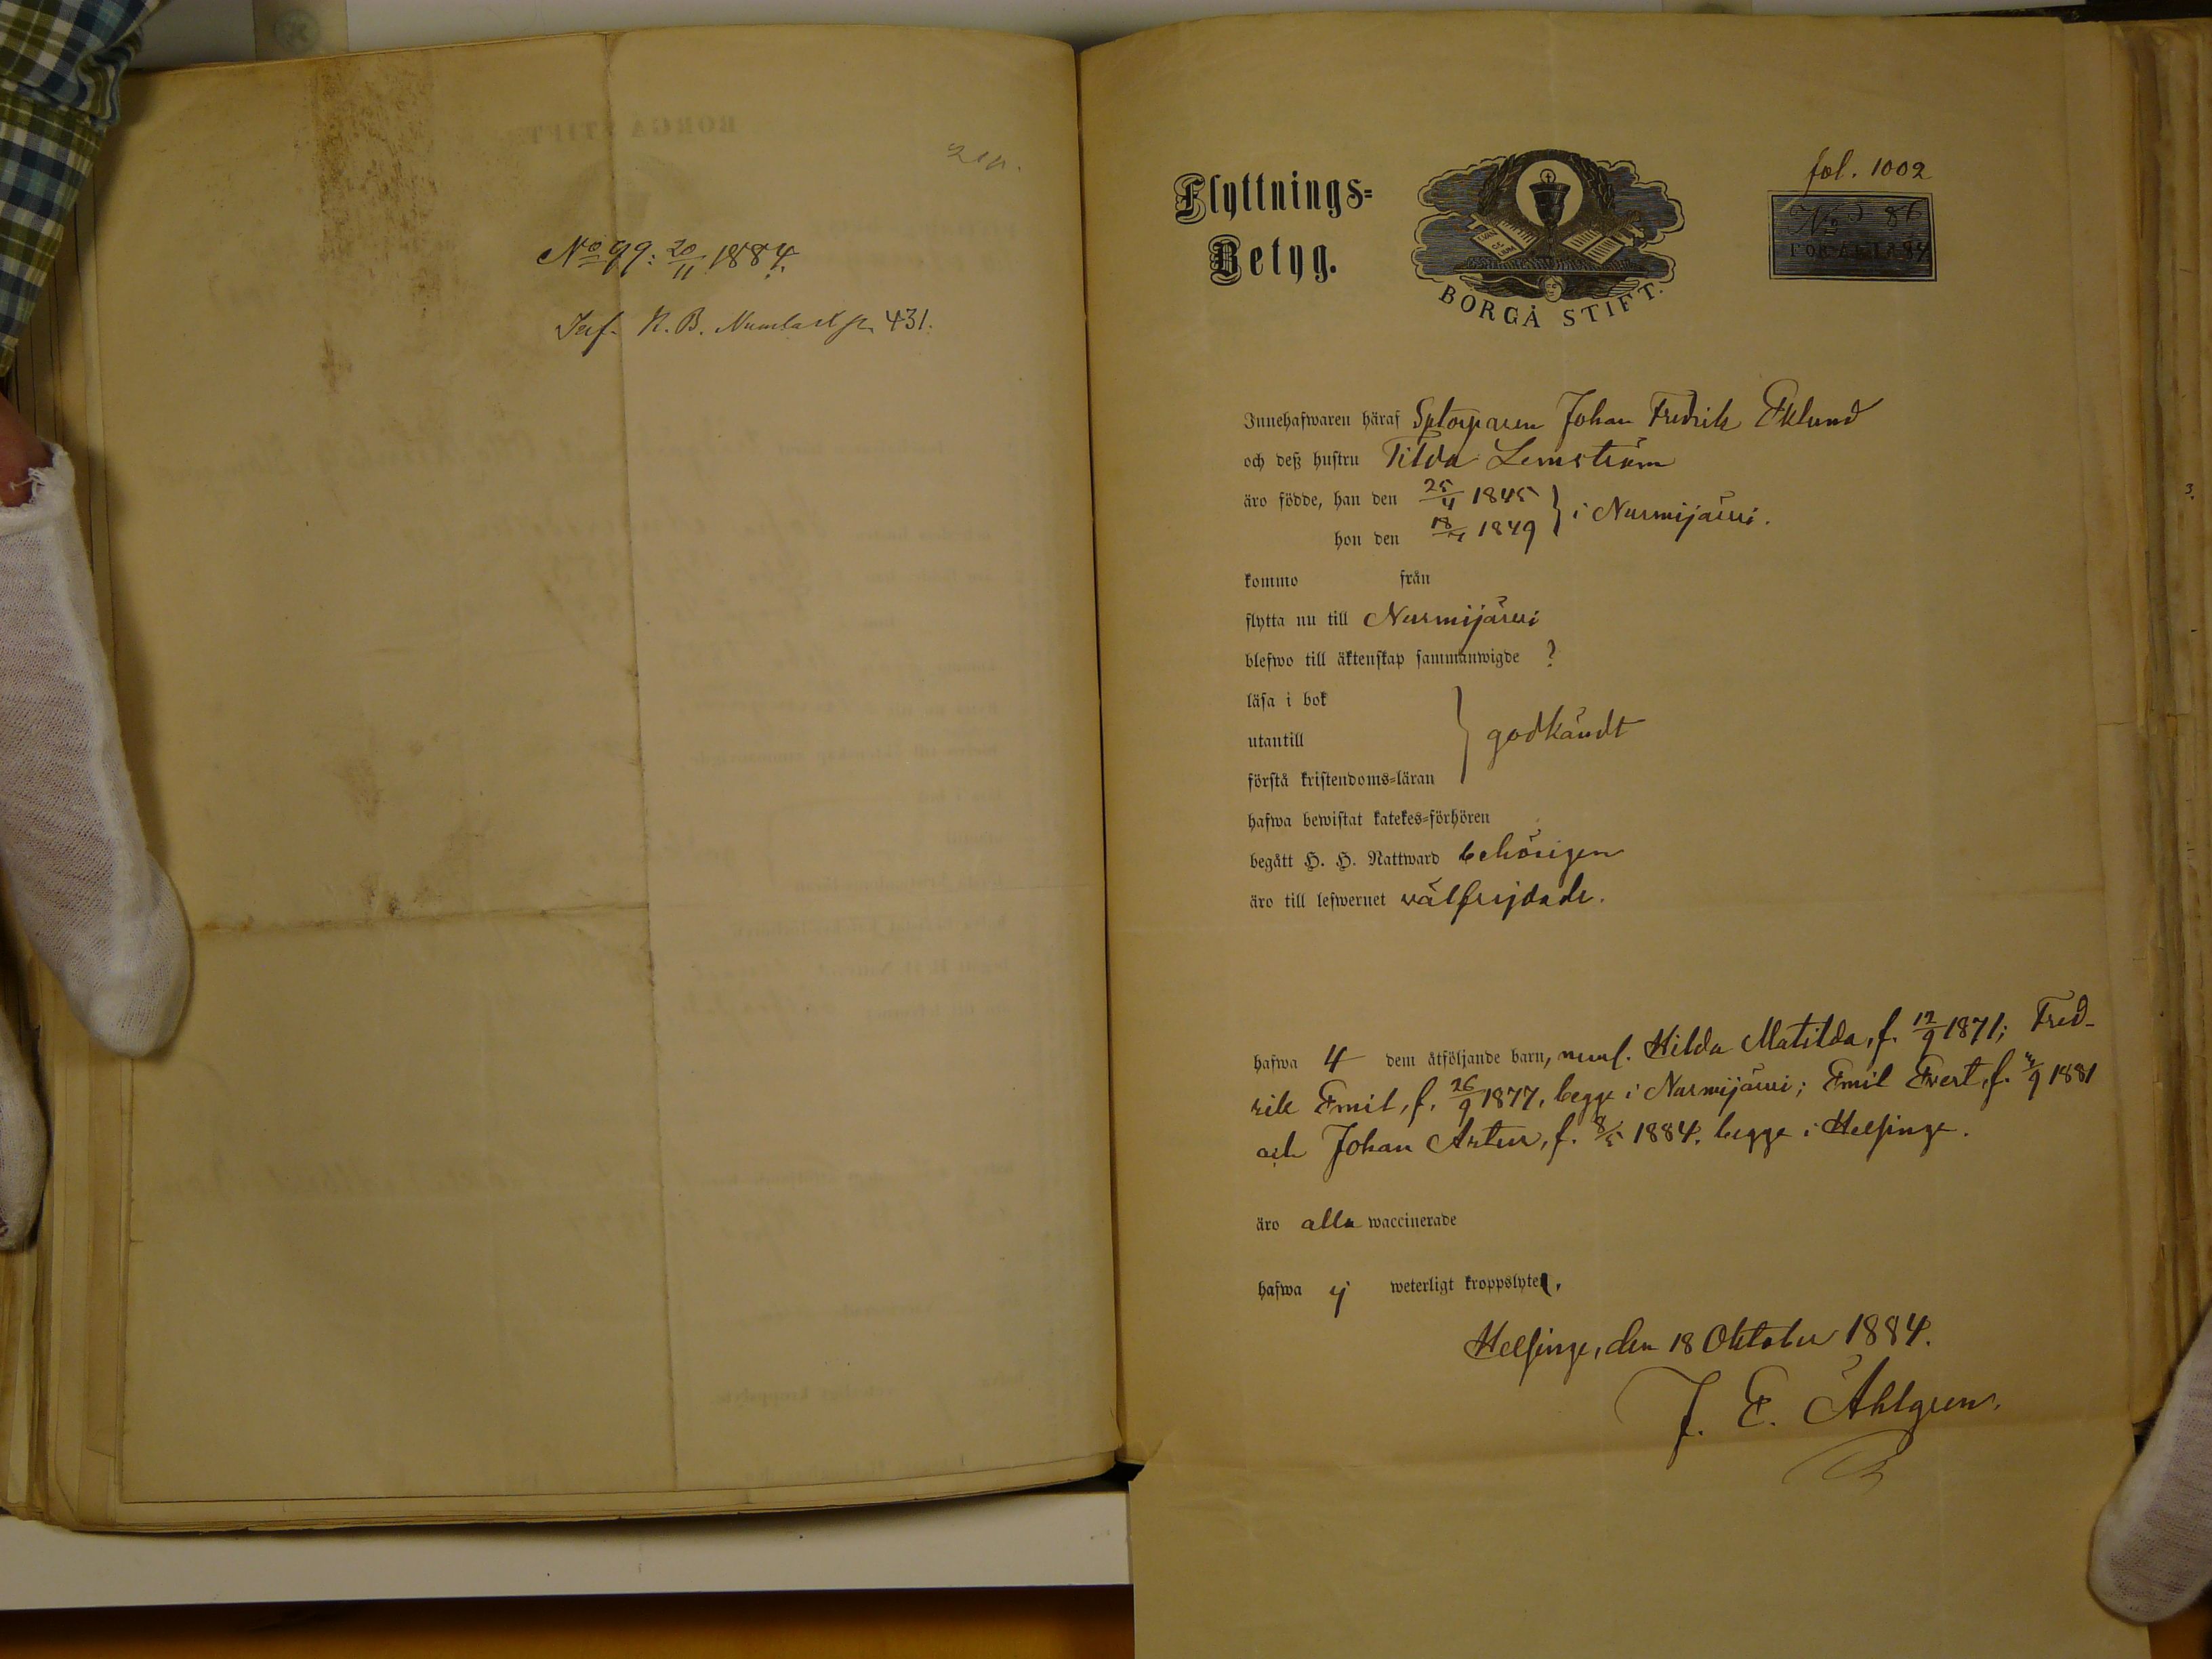 No 99: 20/11 1884.
Inf. K. B. Numlaks p. 431.
Flyttnings=
Betyg.
BORGÅ STIFT.
fol. 1002
No 86
FÖR ÅR 1884
Innehafwaren häraf Sptorparen Johan Fredrik Eklund
och deß hustru Tilda Lemström
äro födde, han den 25/4 1845
hon den 18/4 1849 } i Nurmijärvi.
kommo från
flytta nu till Nurmijärvi
blefwo till äktenskap sammanwigde ?
läsa i bok
utantill } godkändt
förstå kristendoms=läran
hafwa bewistat katekes=förhören
begått H. H. Nattward behörigen
äro till lefwernet välfrejdade.
hafwa 4 dem åtföljande barn, neml. Hilda Matilda, f. 12/9 1871; Fred-
rik Emil, f. 26/9 1877, begge i Nurmijärvi; Emil Evert, f. 1881
och Johan Artur, f. 8/5 1884. begge i Helsinge.
äro alla waccinerade
hafwa ej weterligt kroppslyte.
Helsinge, den 18 Oktober 1884.
J. E. Åhlgren.